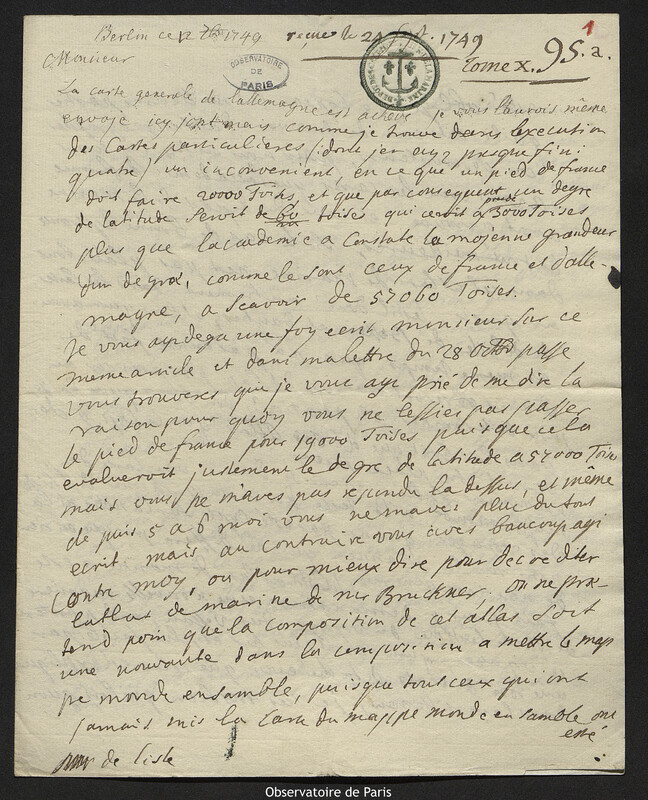 Berlin ce 12 7bre 1749 reçue le 24 1749
1
Tome X. 95. a.
Monsieur
OBSERVATOIRE DE PARIS
La carte generale de lallemagne est achevé je vous laurois même
envoje icy joint mais comme je trouve dans lexecution
des Cartes particulieres (:dont j'en ay presque fini
quatre) un inconvenient, en ce que un pied de france
doit faire 20000 Toises, et que par consequent un degre
de latitude seroit de 60 toises qui seroit 3000 Toises
plus que lacademie a Constaté la mojenne grandeur
d'un degré, comme le sont ceux de france et dalle-
magne, a scavoir de 57060 Toises.
Je vous ay dega une foy ecrit monsieur sur ce
meme article et dans ma lettre du 28 passe
vous trouveres que je vous ay prié de me dire la
raison pour quoy vous ne lessies pas passer
le pied de france pour 19000 Toises puisque cela
evalueroit justement le degre de latitude a 57000 Toise
mais vous ne m'aves pas repondu la dessus, et même
de puis 5 a 6 moi vous ne maves plus du tout
ecrit mais au contraire vous aves beaucoup agi
Contre moy, ou pour mieux dire pour decrediter
latlas de marine de mr Bruckner. on ne pre-
tend poin que la composition de cet atlas soit
une nouvauté dans la composition a mettre le map
pe monde ensamble, puisque tous ceux qui ont
jamais mis la Carte du mappe monde ensamble ont
esté
de lisle
Observatoire de Paris